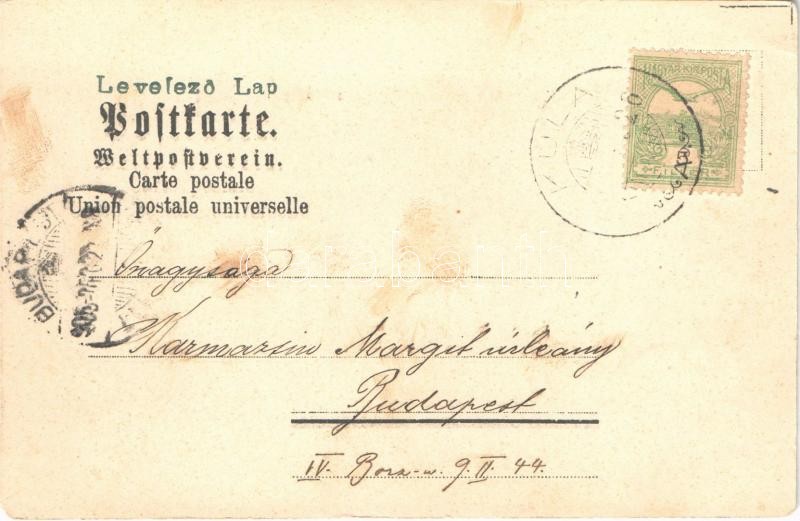 Levelező Lap
Postkarte.
Weltpostverein.
Carte postale
Union postale universelle
MAGYAR KIR. POSTA
FILLÉR
KULA
BUDAPEST
905
Őnagysága
Karmazsin Margit úrleány
Budapest
IV. Borz-u. 9. II. 44.